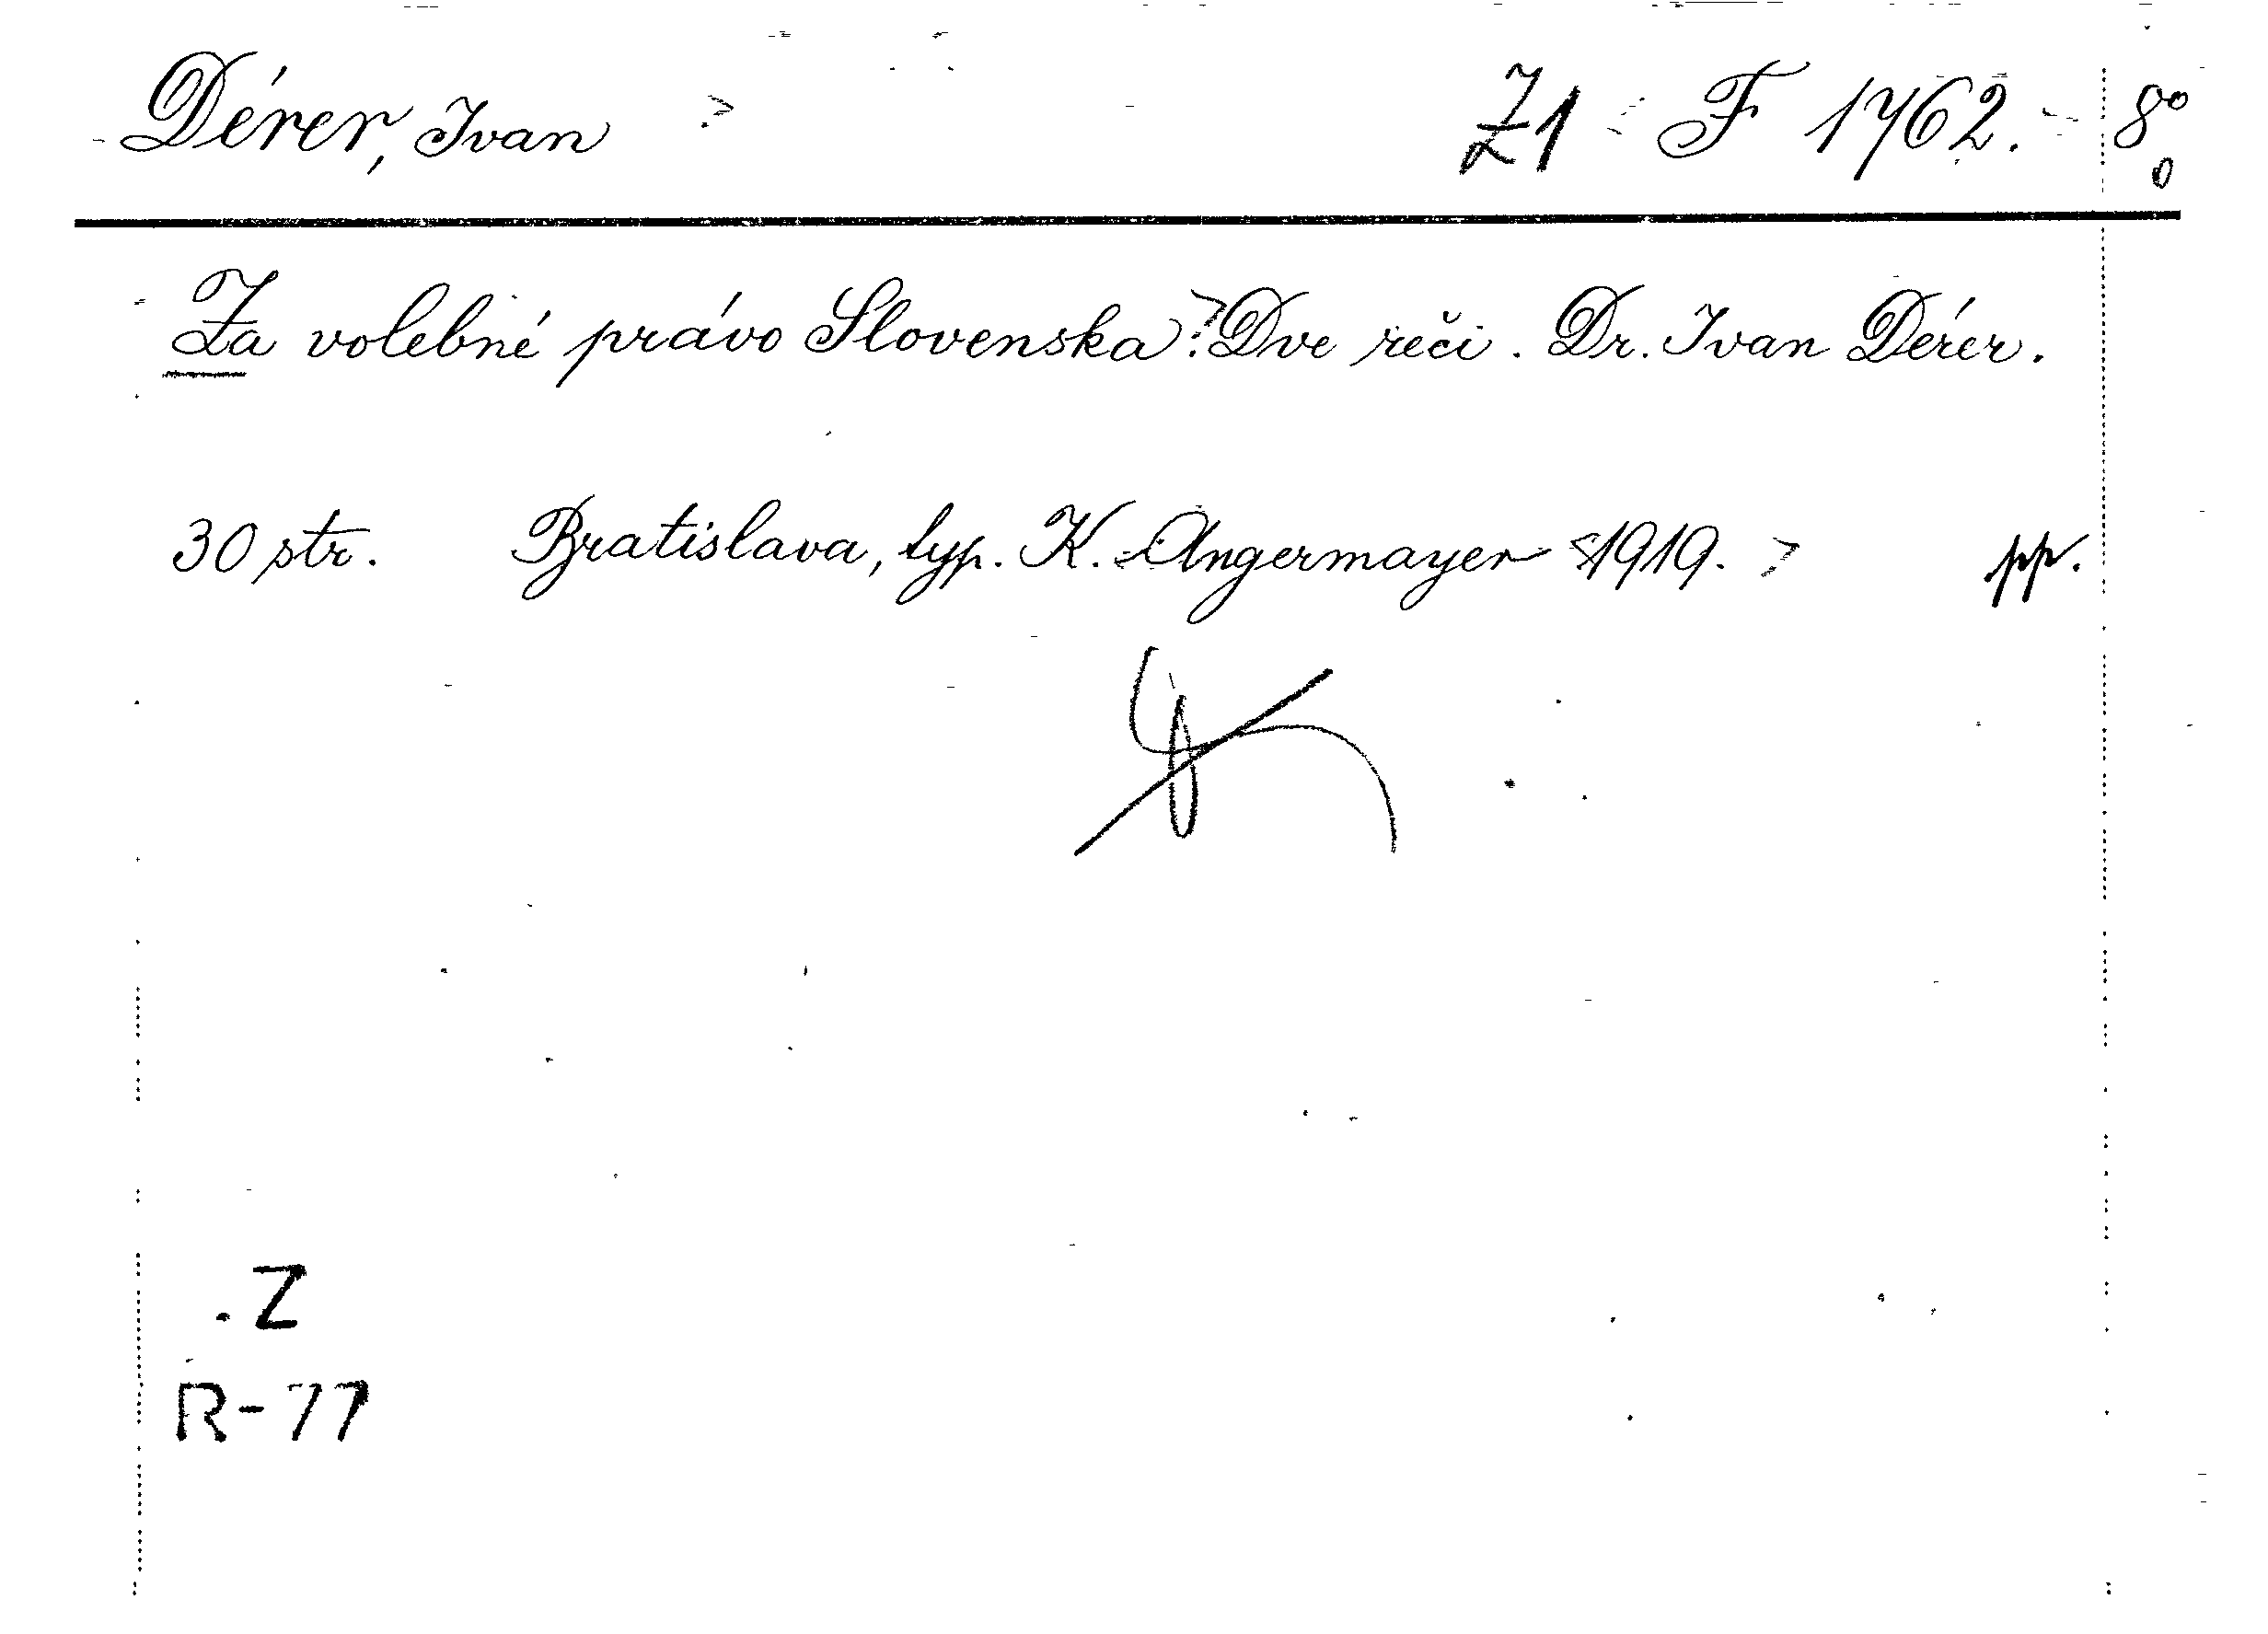 Dérer, Ivan Z1 F 1762. 8°
Za volebné právo Slovenska. Dve reči. Dr. Ivan Dérer.
30 str. Bratislava, typ. K. Angermayer <1919.> pp.
Z
R-77